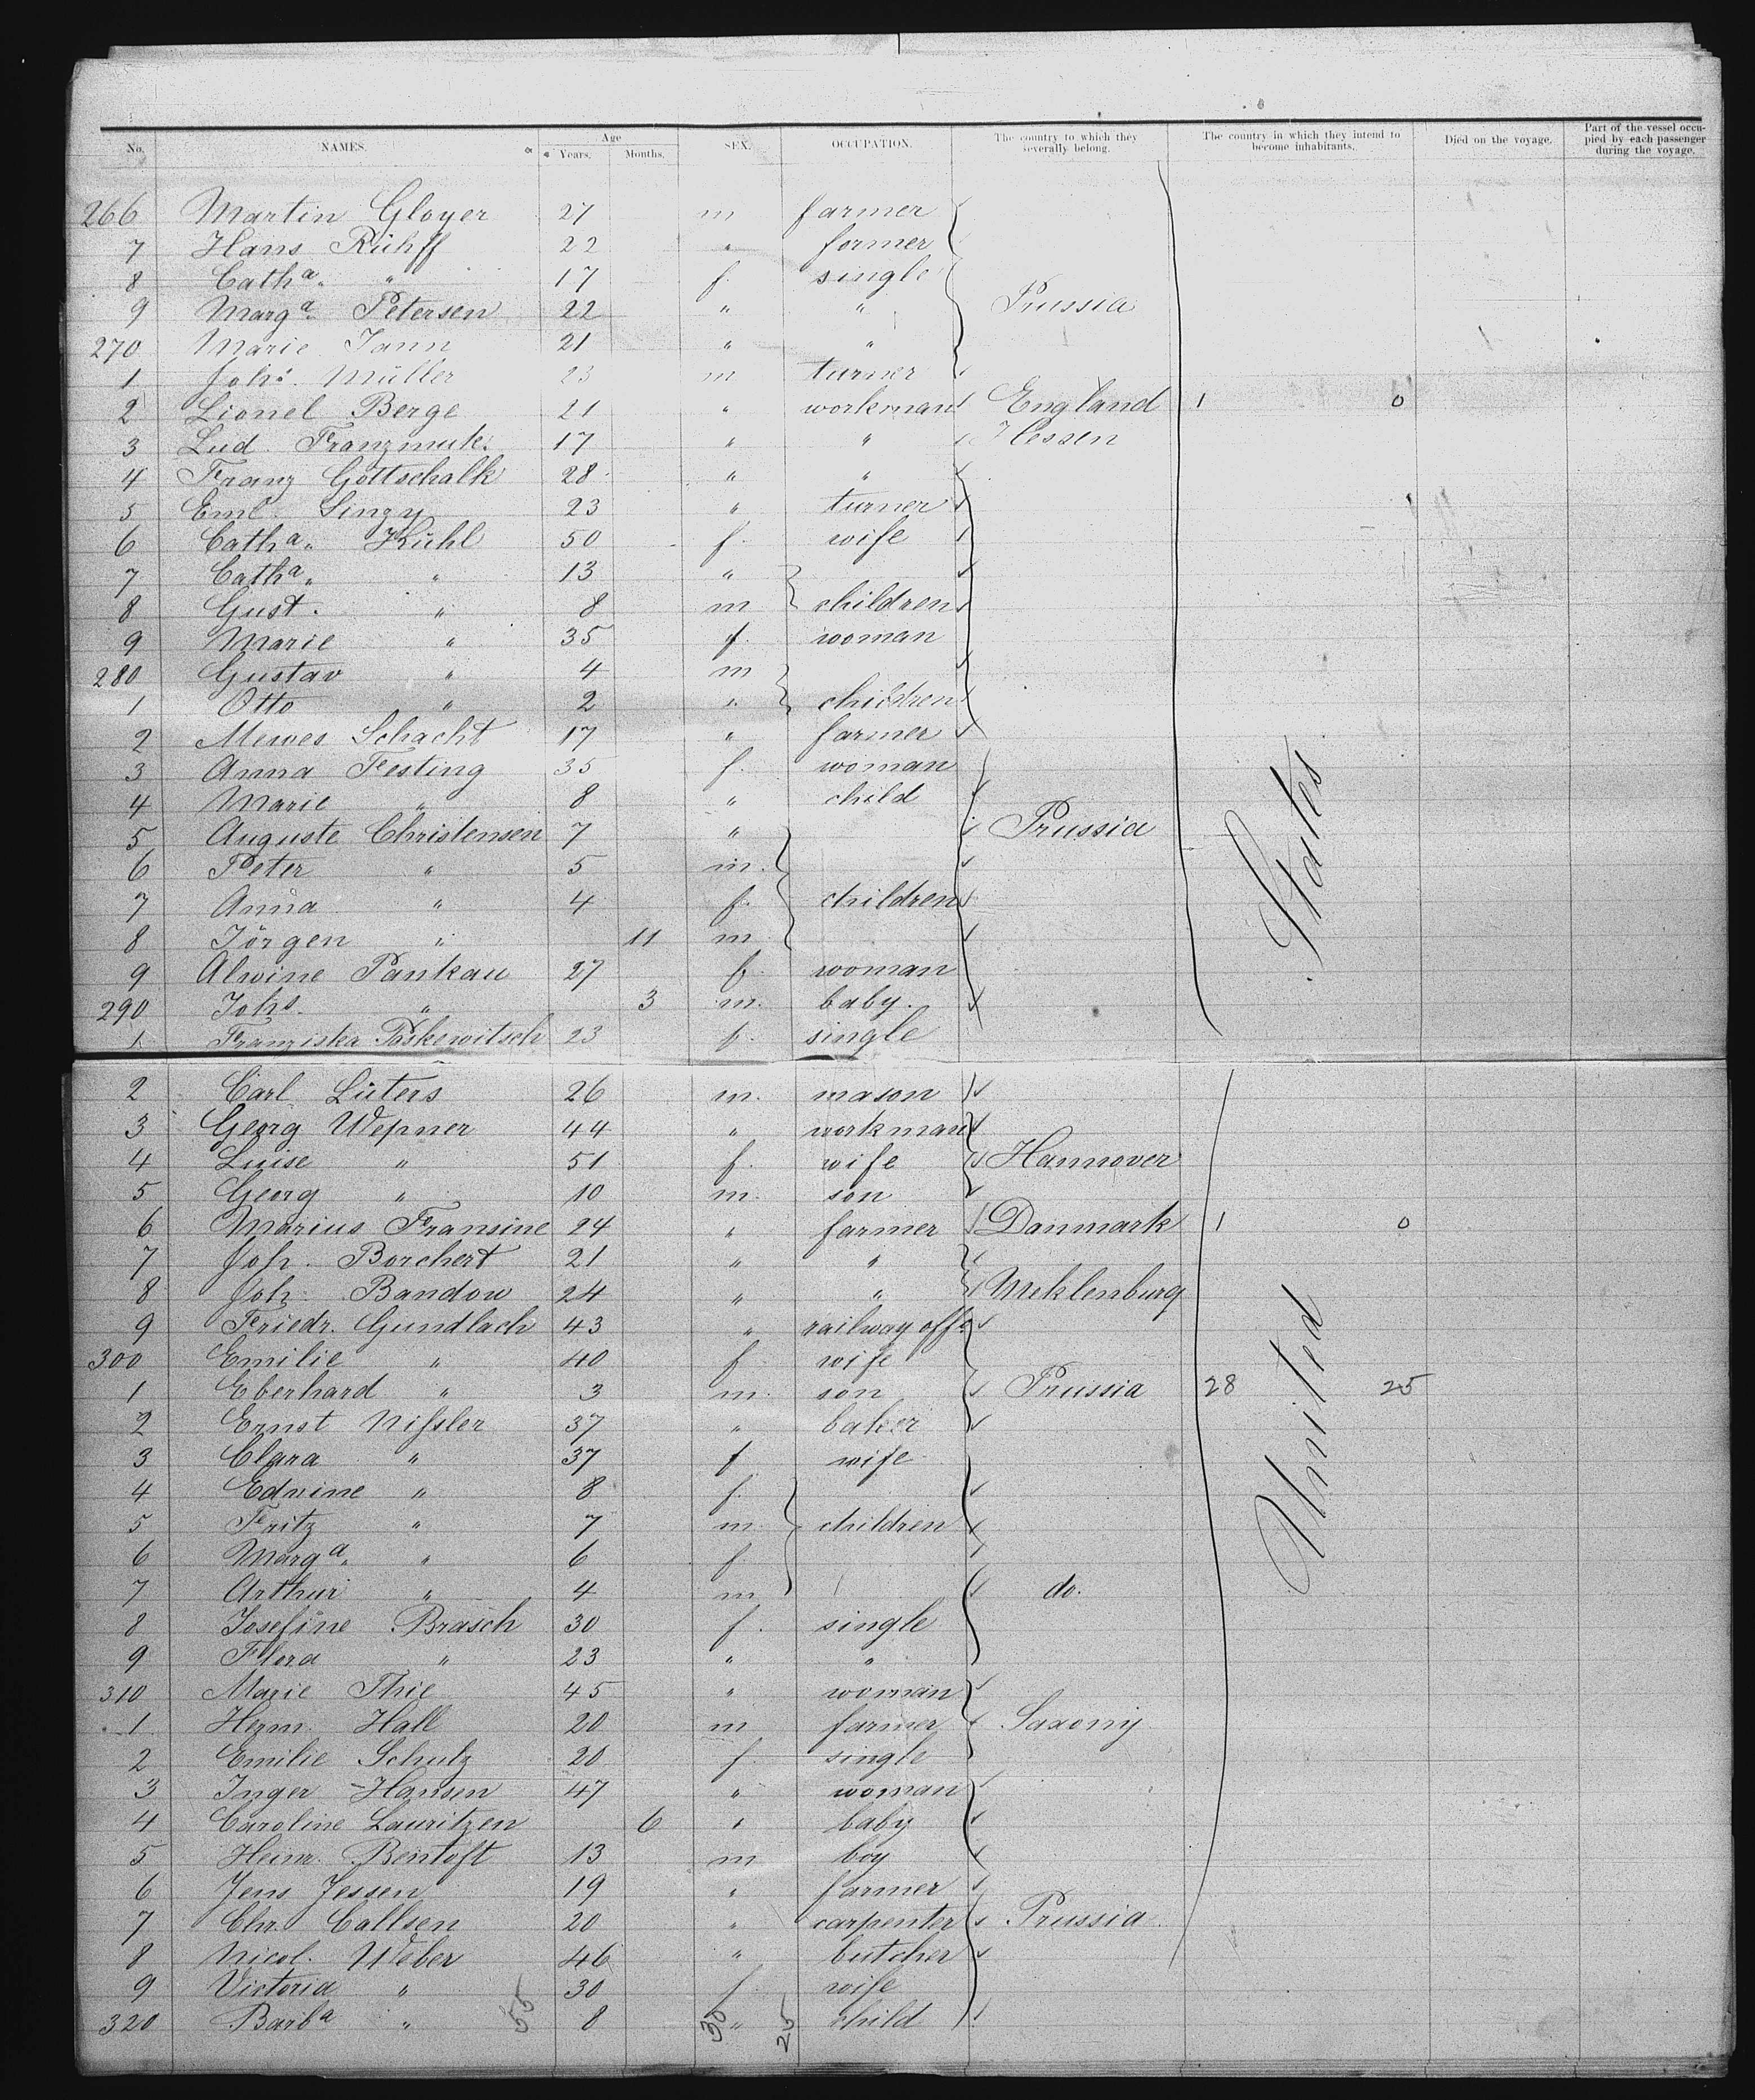 No. NAMES. Age Years. Months. SEX. OCCUPATION. The country to which they severally belong. The country in which they intend to become inhabitants. Died on the voyage. Part of the vessel occupied by each passenger during the voyage.
266 Martin Gloyer 27 m farmer
7 Hans Rühff 22 " farmer
8 Catha. " 17 f. single
9 Marga. Petersen 22 " " Prussia
270 Marie Jann 21 " "
1 Johs. Müller 23 m turner
2 Lionel Berge 21 " workman England 1 0
3 Lud. Franzmuk. 17 " " Hessen
4 Franz Gottschalk 28 " "
5 Eml. Sinzy 23 " turner
6 Catha. Kühl 50 f. wife
7 Catha. " 13 "
8 Gust. " 8 m children
9 Marie " 35 f. woman
280 Gustav " 4 m
1 Otto " 2 " children
2 Mewes Schacht 17 " farmer
3 Anna Festing 35 f. woman
4 Marie " 8 " child
5 Auguste Christensen 7 " Prussia
6 Peter " 5 m.
7 Anna " 4 f. children
8 Jörgen " 11 m
9 Alwine Pankau 27 f. woman
290 Johs. " 3 m. baby.
1 Franziska Paskewitsch 23 f. single
States
2 Carl Lüters 26 m. mason
3 Georg Wepner 44 " workman
4 Luise " 51 f. wife Hannover
5 Georg " 10 m. son
6 Marius Fransine 24 " farmer Danmark 1 0
7 Joh. Borchert 21 " "
8 Joh. Bandow 24 " " Meklenburg
9 Friedr. Gundlach 43 " railway off.
300 Emilie " 40 f wife
1 Eberhard " 3 m. son Prussia 28 25
2 Ernst Nissler 37 " baker
3 Clara " 37 f wife
4 Edwine " 8 f.
5 Fritz " 7 m. children
6 Marga. " 6 f
7 Arthur " 4 m do.
8 Josefine Brasch 30 f. single
9 Flora " 23 " "
310 Marie Thie 45 " woman
1 Herm. Hall 20 m farmer Saxony
2 Emilie Schulz 20 f. single
3 Inger Hansen 47 " woman
4 Caroline Lauritzen 6 " baby
5 Heinr. Bentoft 13 m boy
6 Jens Jessen 19 " farmer
7 Chr. Callsen 20 " carpenter Prussia
8 Nicol. Weber 46 " butcher
9 Victoria " 30 f wife
320 Barba " 8 " child
United
55 30 25